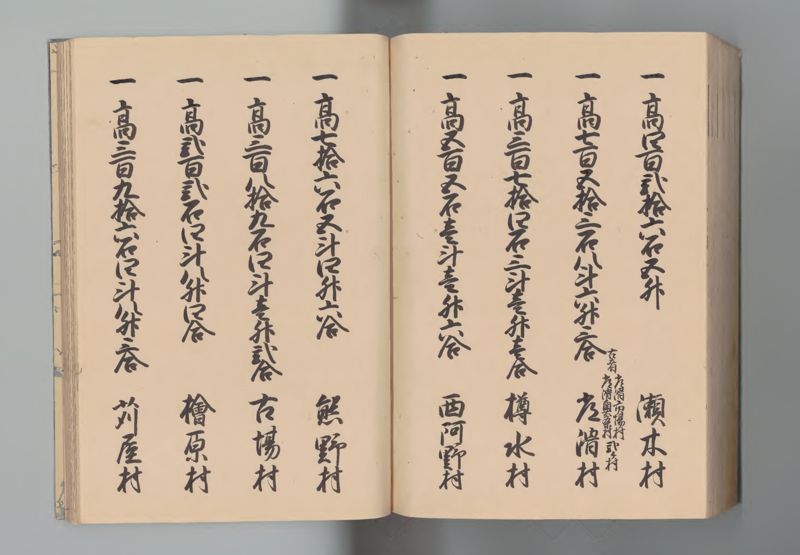 一 高四百弐拾六石五升 瀬木村
一 高七百五拾三石八斗六升三合 常滑村
古者 常滑市場村
常滑奥条村 弐ケ村
一 高三百七拾四石三斗壱升壱合 樽水村
一 高五百五石壱斗壱升六合 西阿野村
一 高七拾六石五斗四升六合 熊野村
一 高三百八拾九石四斗壱升弐合 古場村
一 高弐百弐石四斗八升四合 檜原村
一 高三百九拾六石四斗八升三合 苅屋村